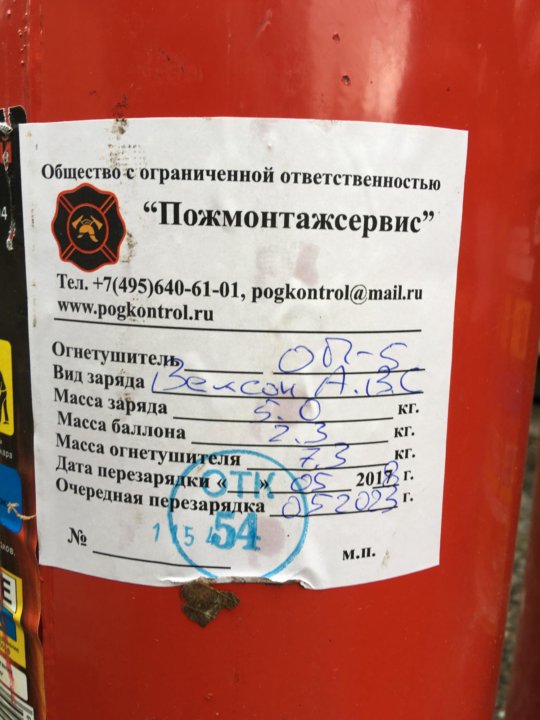 Общество с ограниченной ответственностью
“Пожмонтажсервис”
Тел. +7(495)640-61-01, pogkontrol@mail.ru
www.pogkontrol.ru
Огнетушитель ОП-5
Вид заряда Вексон АВС
Масса заряда 5.0 кг.
Масса баллона 2.3 кг.
Масса огнетушителя 7.3 кг.
Дата перезарядки « » 05 2018 г.
Очередная перезарядка 052023 г.
ОТК
54
№
м.п.